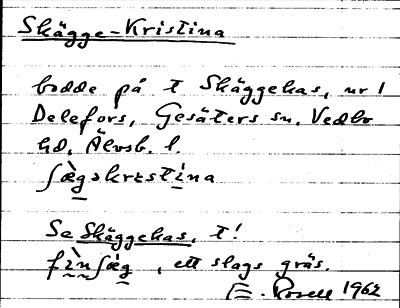 Skägge-Kristina
bodde på t Skäggekas, nr 1
Delefors, Gesäters sn. Vedbo
hd. Älvsb. l.
ʃæ̀gəkrɪstina
Se Skäggekas, t!
fìnʃæg, ett slags gräs.
E. Rosell 1962